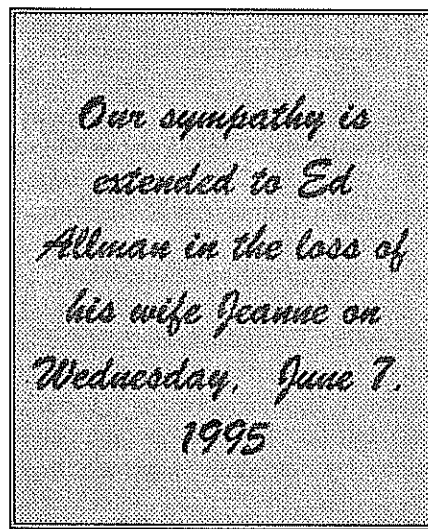 Our sympathy is
extended to Ed
Allman in the loss of
his wife Jeanne on
Wednesday, June 7,
1995